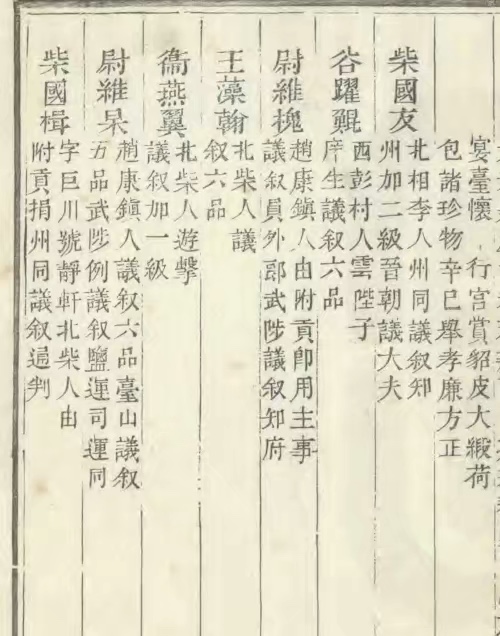 宴臺懷 行宮賞貂皮大緞荷
包諸珍物辛巳舉孝廉方正
柴國友
北相李人州同議叙知
州加二級晉朝議大夫
谷躍鯤
西彭村人雲陛子
庠生議叙六品
尉維槐
趙康鎮人由附貢卽用主事
議叙員外郎武陟議叙知府
王藻翰
北柴人議
叙六品
衞燕翼
北柴人遊擊
議叙加一級
尉維杲
趙康鎮人議叙六品臺山議叙
五品武陟例議叙鹽運司運同
柴國楫
字巨川號靜軒北柴人由
附貢捐州同議叙通判